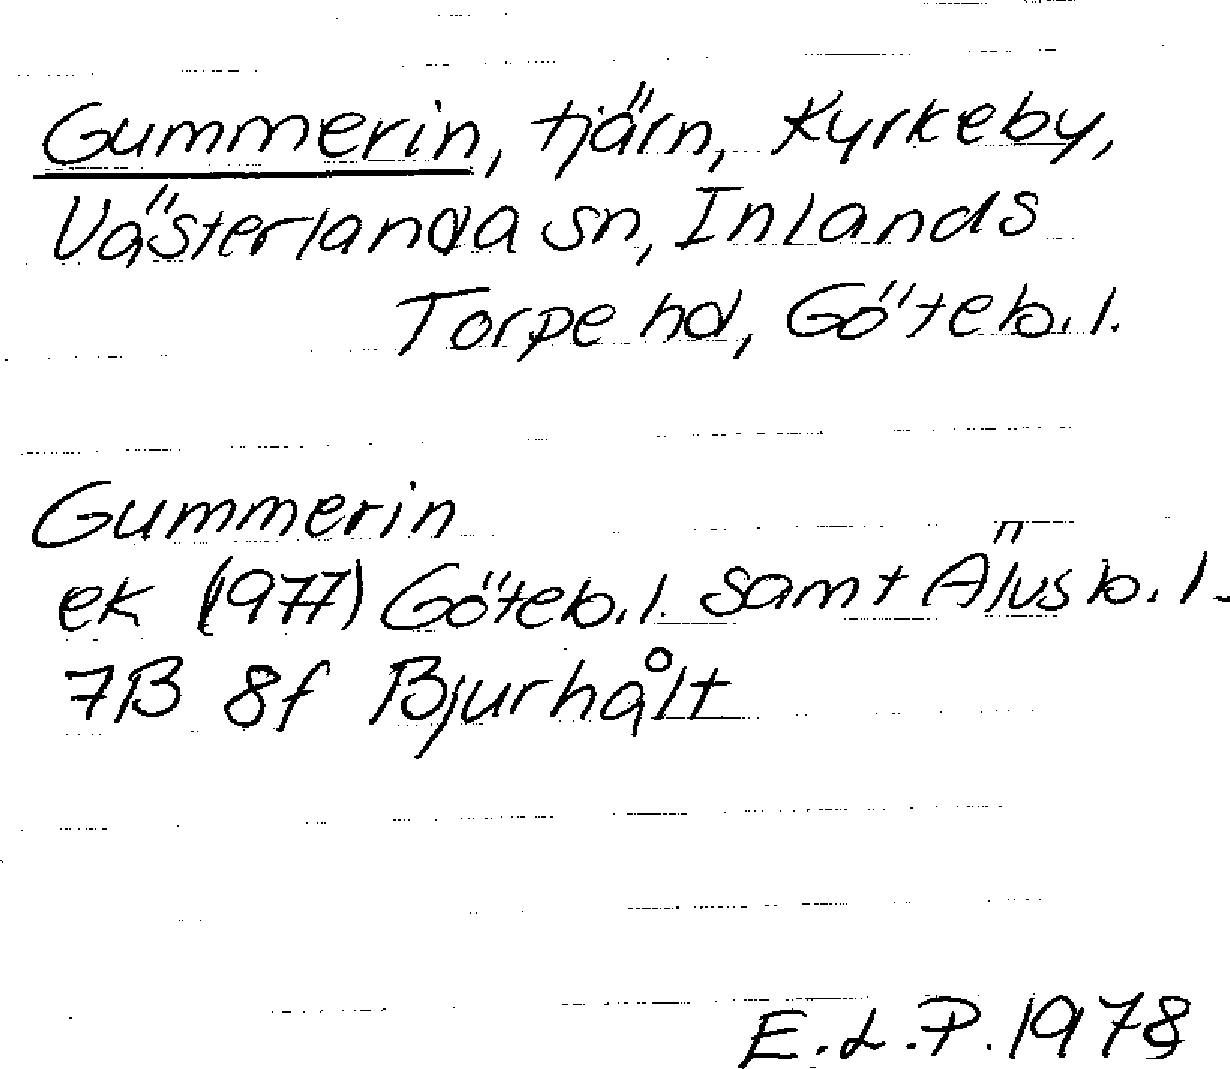 Gummerin, tjärn, Kyrkeby,
Västerlanda sn, Inlands
Torpe hd, Göteb.l.
Gummerin
ek (1977) Göteb.l. samt Älvsb.l.
7B 8f Bjurhålt
E.L.P. 1978